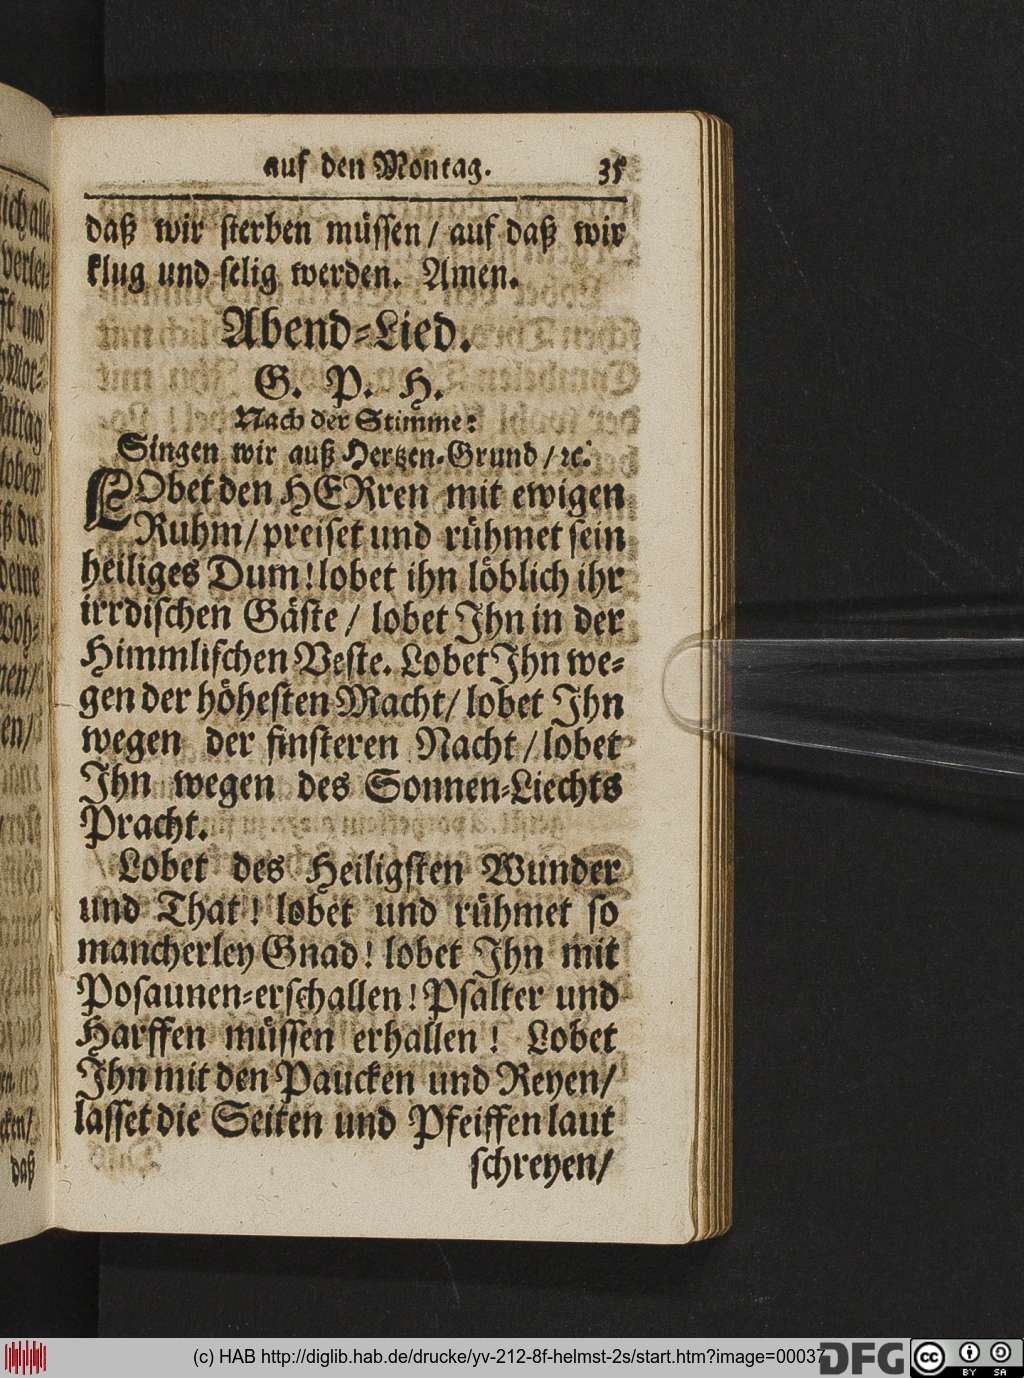 auf den Montag. 35
daß wir sterben müssen / auf daß wir
klug und selig werden. Amen.
Abend-Lied.
G. P. H.
Nach der Stimme:
Singen wir auß Hertzen-Grund / ꝛc.
LObet den HERren mit ewigen
Ruhm / preiset und rühmet sein
heiliges Dum! lobet ihn löblich ihr
irrdischen Gäste / lobet Ihn in der
Himmlischen Veste. Lobet Ihn we-
gen der höhesten Macht / lobet Ihn
wegen der finsteren Nacht / lobet
Ihn wegen des Sonnen-Liechts
Pracht.
Lobet des Heiligsten Wunder
und That! lobet und rühmet so
mancherley Gnad! lobet Ihn mit
Posaunen-erschallen! Psalter und
Harffen müssen erhallen! Lobet
Ihn mit den Paucken und Reyen /
lasset die Seiten und Pfeiffen laut
schreyen /
daß
(c) HAB http://diglib.hab.de/drucke/yv-212-8f-helmst-2s/start.htm?image=00037
DFG
cc BY SA